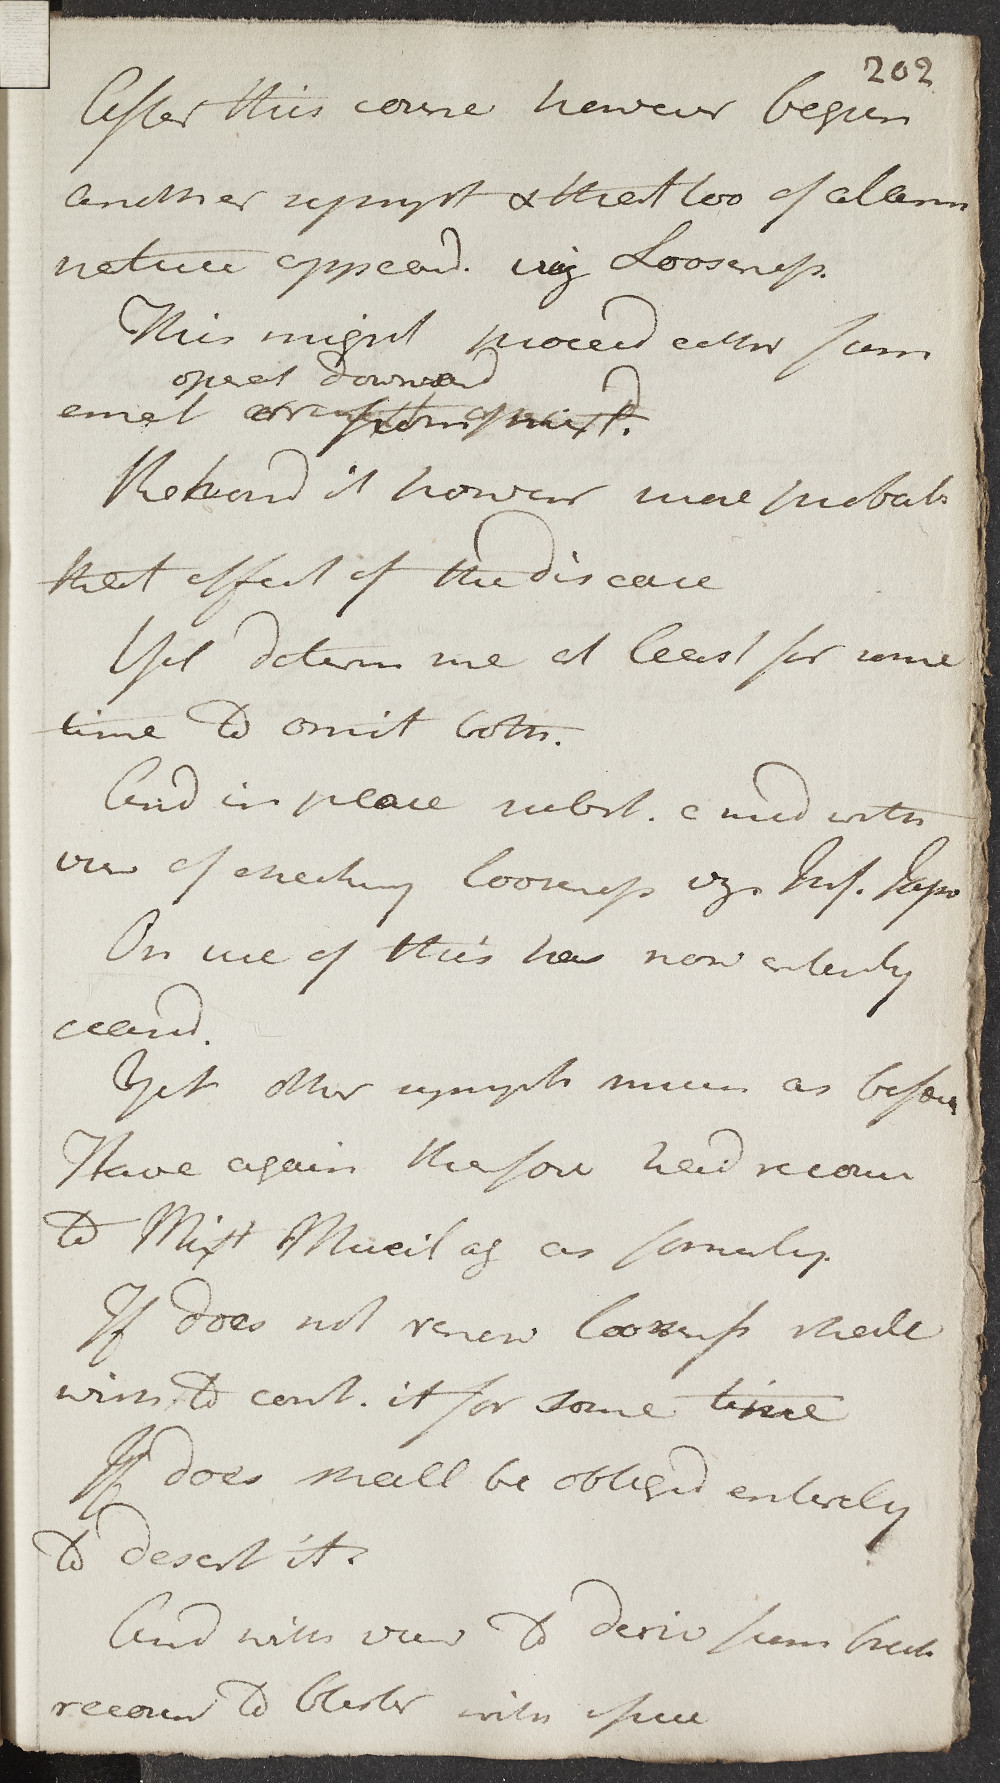 202
After this course however begun
another sympt & that too of alarm
nature appeard. viz Looseness.
This might proceed either from
operat downward
emet or from mixt.
Rekond it however more probab
that effect of the disease
Yet determ me at least for some
time to omit both.
And in place subst. a med with
view of checking looseness vz. Inf. Japo
On use of this has now entirely
ceasd.
Yet other sympts much as before
Have again therefore had recour
to Mixt Mucilag as formerly.
If does not renew looseness shall
wish to cont. it for some time
If does shall be obligd entirely
to desert it.
And with view to deriv from breast
recours to blister with issue